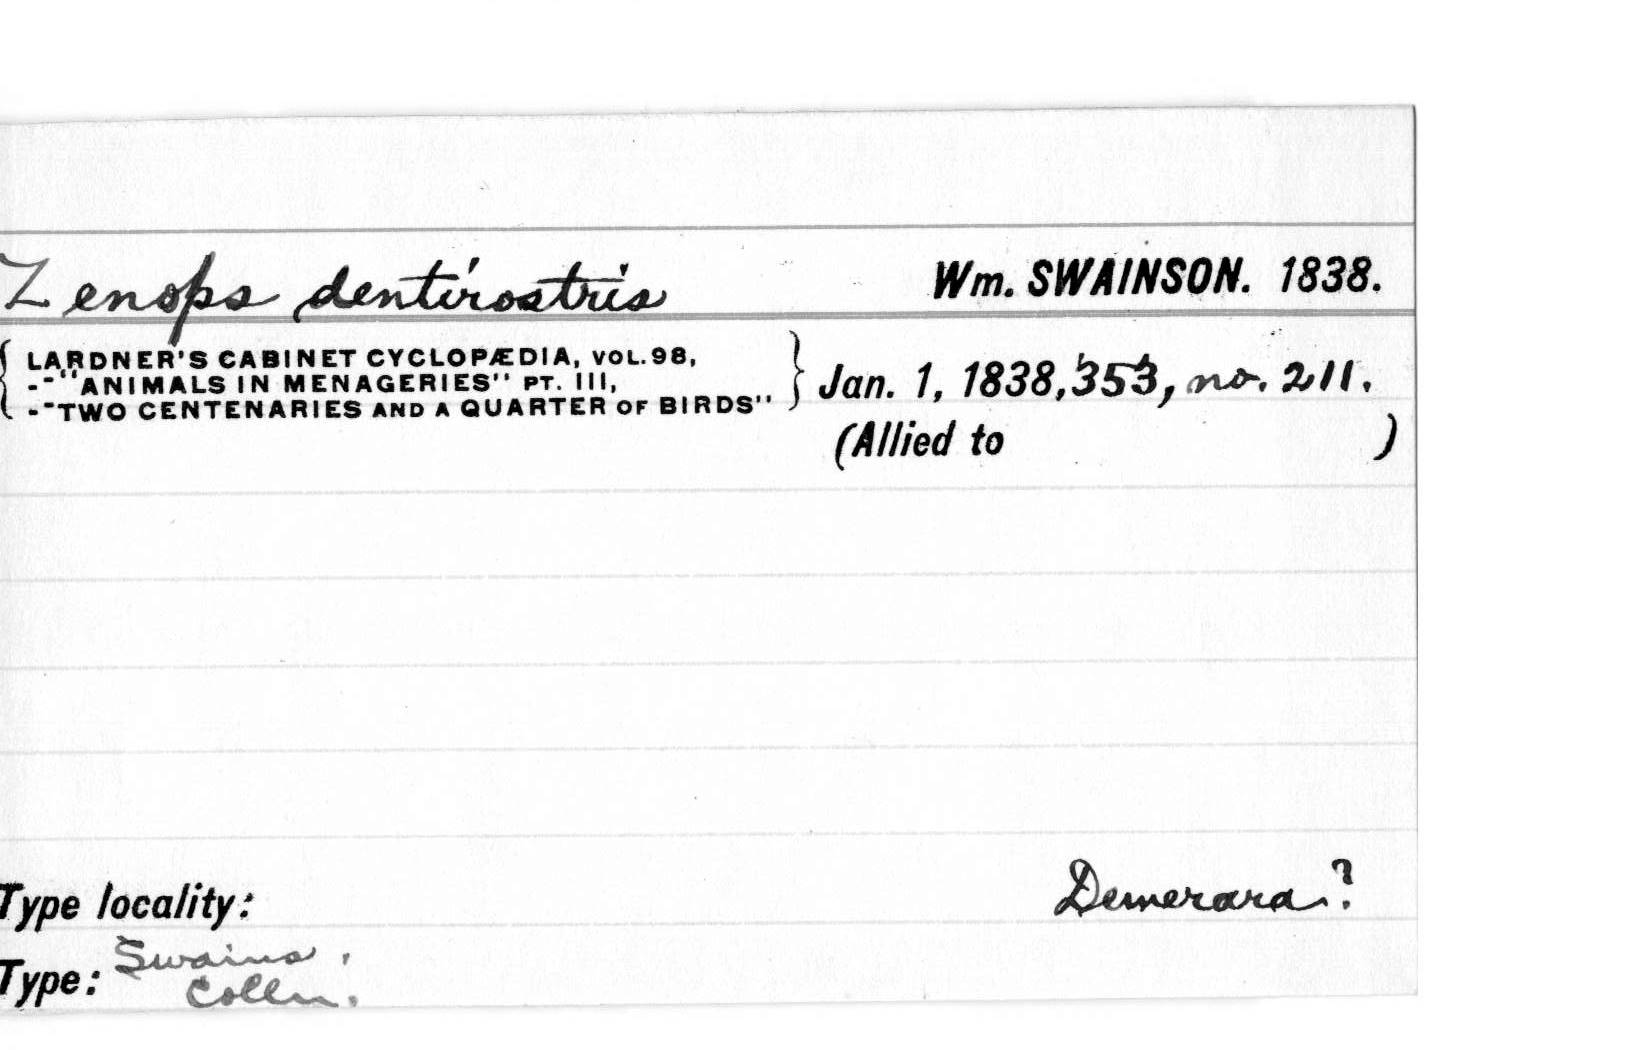 Zenops dentirostris Wm. SWAINSON. 1838.
LARDNER'S CABINET CYCLOPÆDIA, VOL.98,
--"ANIMALS IN MENAGERIES" PT. III,
--"TWO CENTENARIES AND A QUARTER OF BIRDS" Jan. 1, 1838, 353, no. 211.
(Allied to )
Type locality: Demerara?
Type: Swains.
Colln.